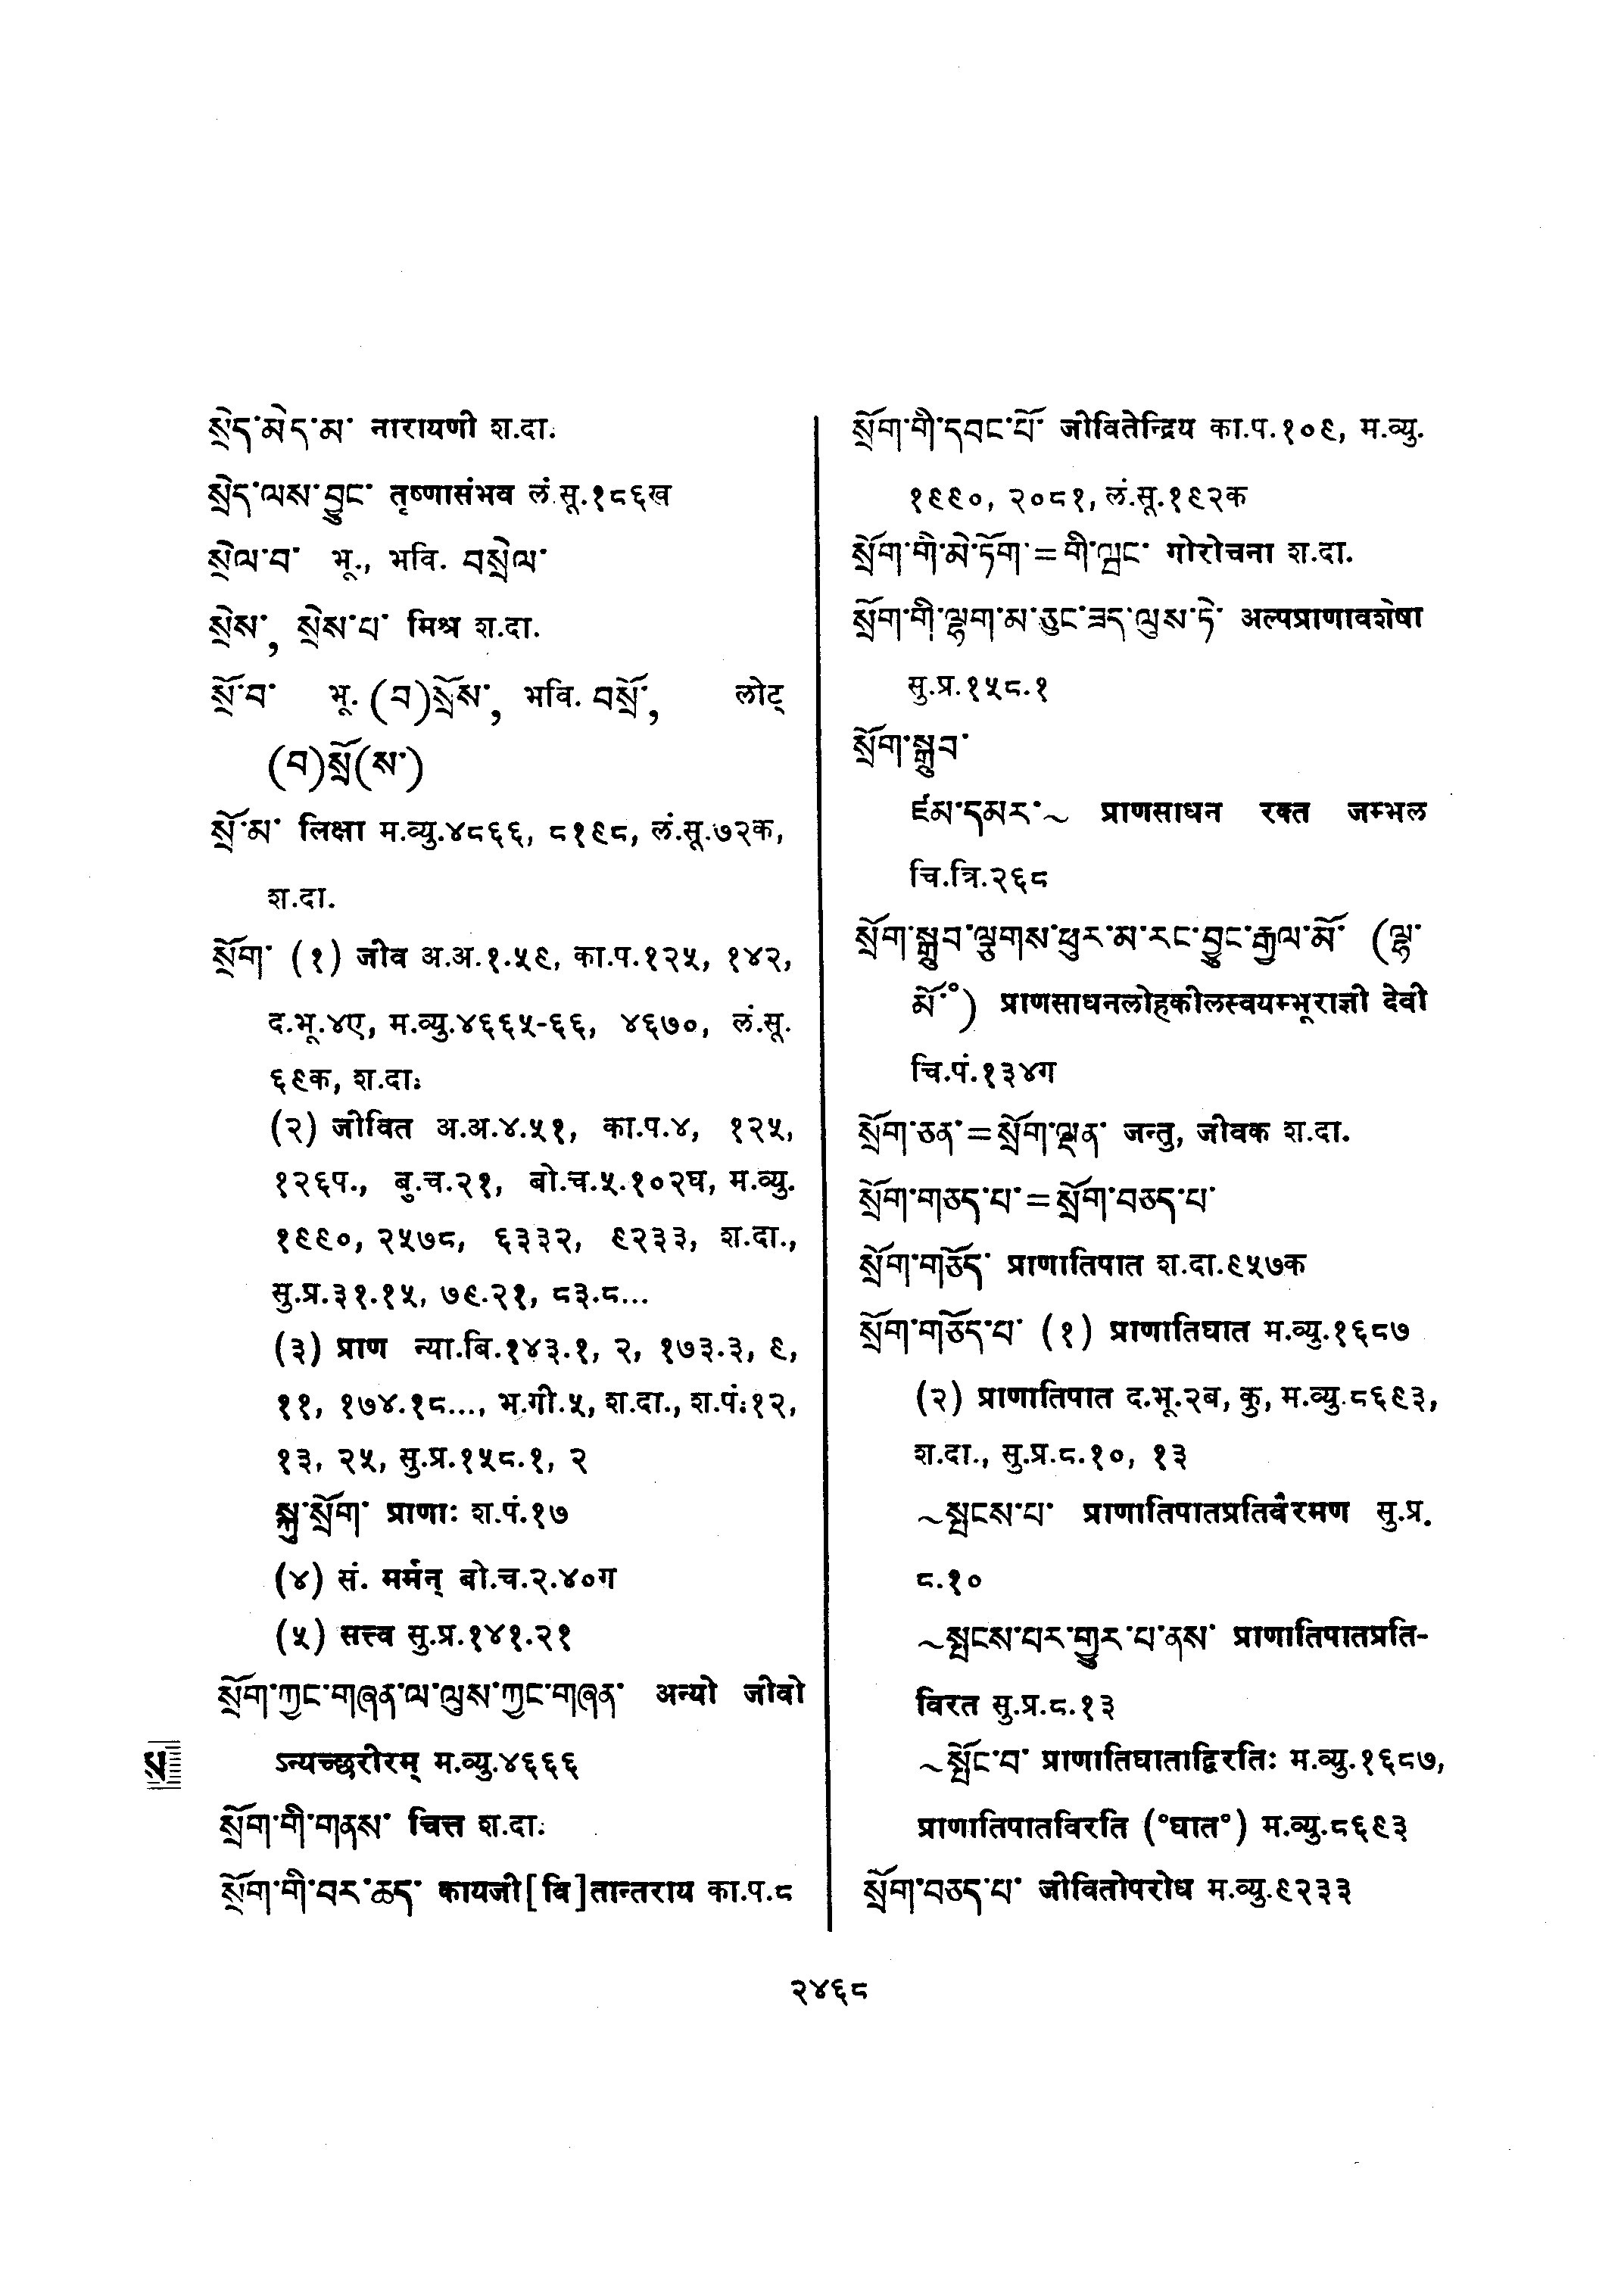 སྲེད་མེད་མ་ नारायणी श.दा.
སྲེད་ལས་བྱུང་ तृष्णासंभव लं.सू.१८६ख
སྲེལ་བ་ भू., भवि. བསྲེལ་
སྲེས་, སྲེས་པ་ मिश्र श.दा.
སྲོ་བ་ भू. (བ)སྲོས་, भवि. བསྲོ་, लोट्
(བ)སྲོ(ས་)
སྲོ་མ་ लिक्षा म.व्यु.४८६६, ८१९८, लं.सू.७२क,
श.दा.
སྲོག་ (१) जीव अ.अ.१.५९, का.प.१२५, १४२,
द.भू.४ए, म.व्यु.४६६५-६६, ४६७०, लं.सू.
६९क, श.दा.
(२) जीवित अ.अ.४.५१, का.प.४, १२५,
१२६प., बु.च.२१, बो.च.५.१०२घ, म.व्यु.
१९९०, २५७८, ६३३२, ९२३३, श.दा.,
सु.प्र.३१.१५, ७९.२१, ८३.८...
(३) प्राण न्या.बि.१४३.१, २, १७३.३, ९,
११, १७४.१८..., भ.गी.५, श.दा., श.पं.१२,
१३, २५, सु.प्र.१५८.१, २
སྐུ་སྲོག་ प्राणाः श.पं.१७
(४) सं. मर्मन् बो.च.२.४०ग
(५) सत्त्व सु.प्र.१४१.२१
སྲོག་ཀྱང་གཞན་ལ་ལུས་ཀྱང་གཞན་ अन्यो जीवो
ऽन्यच्छरीरम् म.व्यु.४६६६
ས
སྲོག་གི་གནས་ चित्त श.दा.
སྲོག་གི་བར་ཆད་ कायजी[वि]तान्तराय का.प.८
སྲོག་གི་དབང་པོ་ जीवितेन्द्रिय का.प.१०९, म.व्यु.
१९९०, २०८१, लं.सू.१९२क
སྲོག་གི་མེ་ཏོག་=གི་ལྦང་ गोरोचना श.दा.
སྲོག་གི་ལྷག་མ་ཅུང་ཟད་ལུས་ཏེ་ अल्पप्राणावशेषा
सु.प्र.१५८.१
སྲོག་སྒྲུབ་
ཛམ་དམར་~ प्राणसाधन रक्त जम्भल
चि.त्रि.२६८
སྲོག་སྒྲུབ་ལྕགས་ཕུར་མ་རང་བྱུང་རྒྱལ་མོ་ (ལྷ་
མོ་°) प्राणसाधनलोहकीलस्वयम्भूराज्ञी देवी
चि.पं.१३४ग
སྲོག་ཅན་=སྲོག་ལྡན་ जन्तु, जीवक श.दा.
སྲོག་གཅད་པ་=སྲོག་བཅད་པ་
སྲོག་གཅོད་ प्राणातिपात श.दा.९५७क
སྲོག་གཅོད་པ་ (१) प्राणातिघात म.व्यु.१६८७
(२) प्राणातिपात द.भू.२ब, कु, म.व्यु.८६९३,
श.दा., सु.प्र.८.१०, १३
~སྤངས་པ་ प्राणातिपातप्रतिवैरमण सु.प्र.
८.१०
~སྤངས་པར་གྱུར་པ་ནས་ प्राणातिपातप्रति-
विरत सु.प्र.८.१३
~སྤོང་བ་ प्राणातिघाताद्विरतिः म.व्यु.१६८७,
प्राणातिपातविरति (°घात°) म.व्यु.८६९३
སྲོག་བཅད་པ་ जीवितोपरोध म.व्यु.९२३३
२४६८